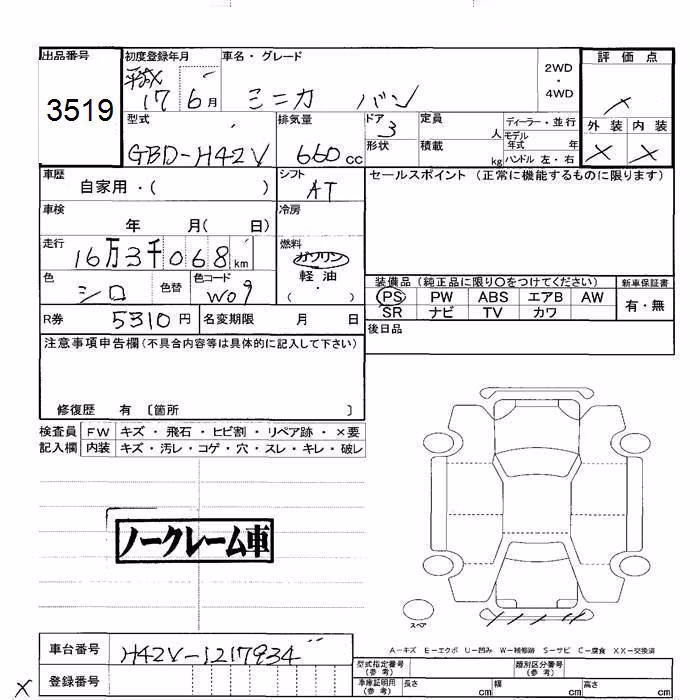 出品番号
3519
初度登録年月
平成
17 6月
車名・グレード
ミニカ バン
2WD
・
4WD
評価点
×
外装 内装
× ×
型式
GBD-H42V
排気量
660 cc
ドア
3
形状
定員
人
積載
kg
ディーラー・並行
モデル
年式 年
ハンドル 左・右
車歴
自家用・( )
シフト
AT
セールスポイント (正常に機能するものに限ります)
車検
年 月( 日)
冷房
走行
16万3千068km
燃料
ガソリン
軽・油
・
( )
色
シロ
色替
色コード
W09
装備品 (純正品に限り○をつけてください)
新車保証書
PS PW ABS エアB AW
SR ナビ TV カワ
有・無
R券 5310円
名変期限 月 日
後日品
注意事項申告欄(不具合内容等は具体的に記入して下さい)
修復歴 有 〔箇所 〕
検査員 FW キズ・飛石・ヒビ割・リペア跡・×要
記入欄 内装 キズ・汚レ・コゲ・穴・スレ・キレ・破レ
ノークレーム車
スペア
A-キズ E-エクボ U-凹み W-補修跡 S-サビ C-腐食 XX-交換済
車台番号 H42V-1217934
登録番号
×
型式指定番号
(参考)
類別区分番号
(参考)
車庫証明用
(参考)
長さ cm 幅 cm 高さ cm